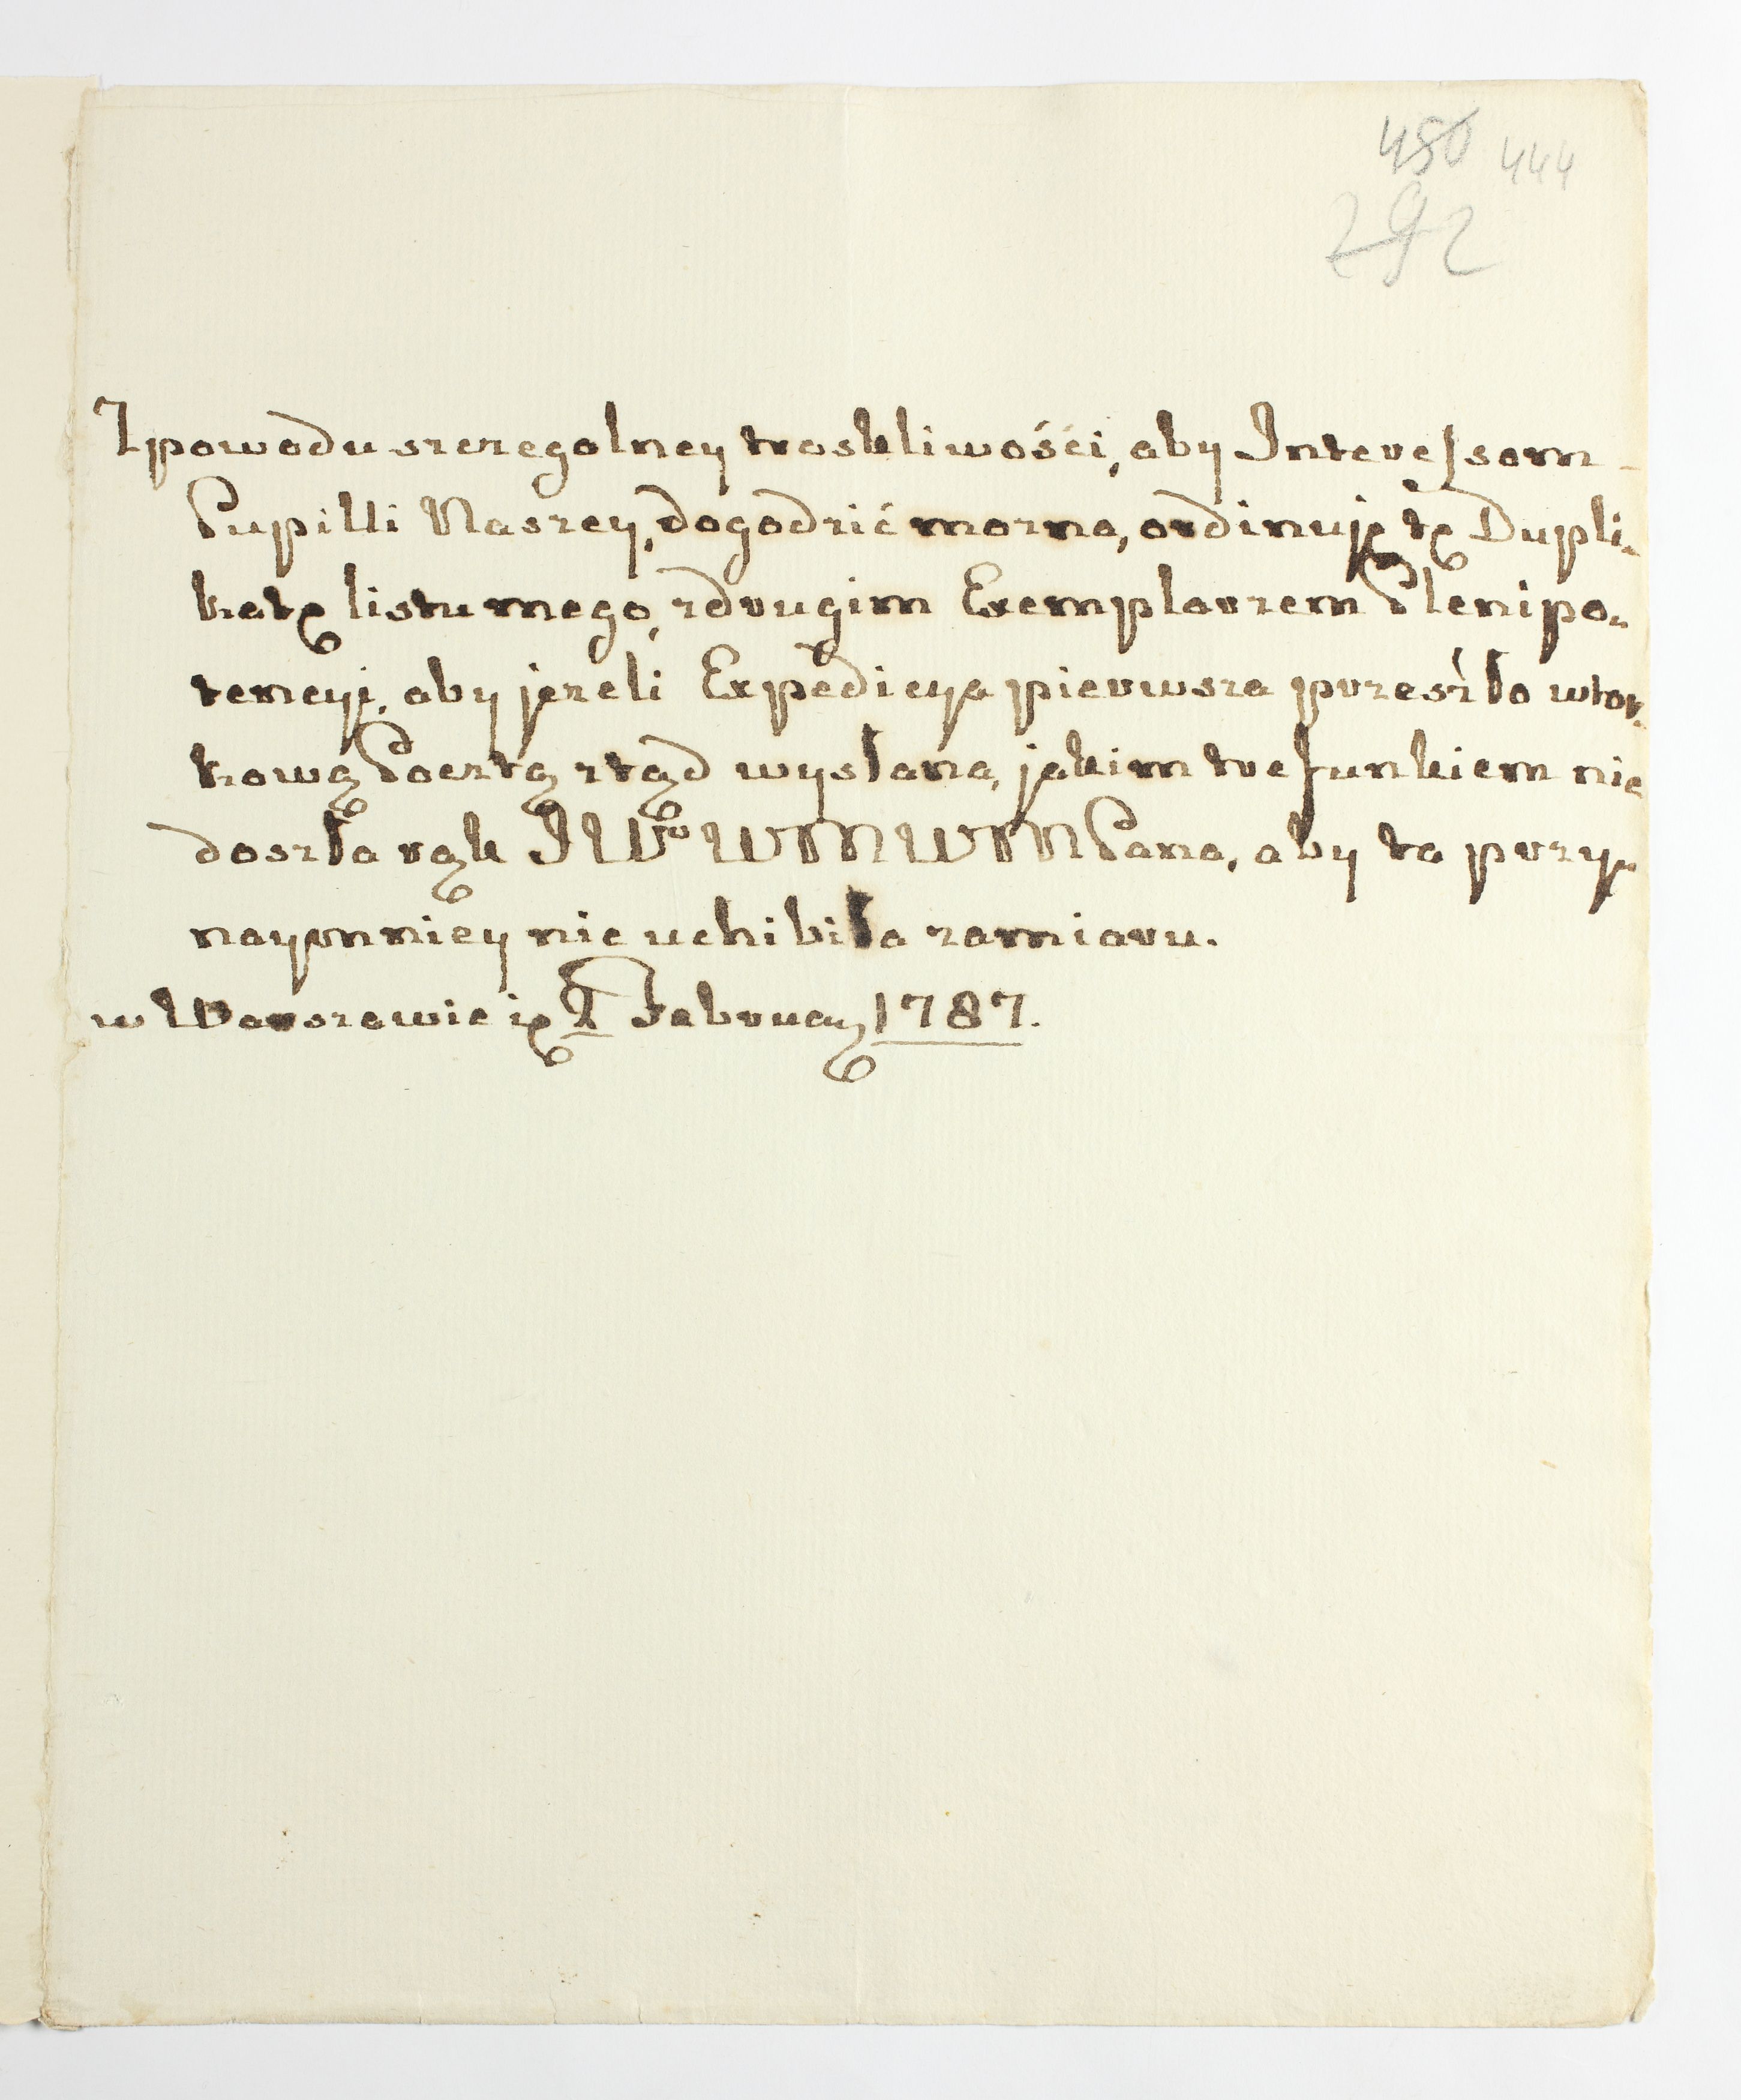 450 444
292
Z powodu szczegolney troskliwośći, aby Interessom
Pupilli Naszey, dogodzić mozna, ordinuję tę Dupli-
katę listu mego, z drugim Exemplarzem Plenipo-
tencyi, aby jezeli Expedicya pierwsza przeszło wtor-
kową Pocztą ztąd wysłana, jakim trefunkiem nie
doszła rąk JWo WM WM Pana, aby ta przy-
naymniey nie uchibiła zamiaru.
w Warszawie ię Februar, 1787.